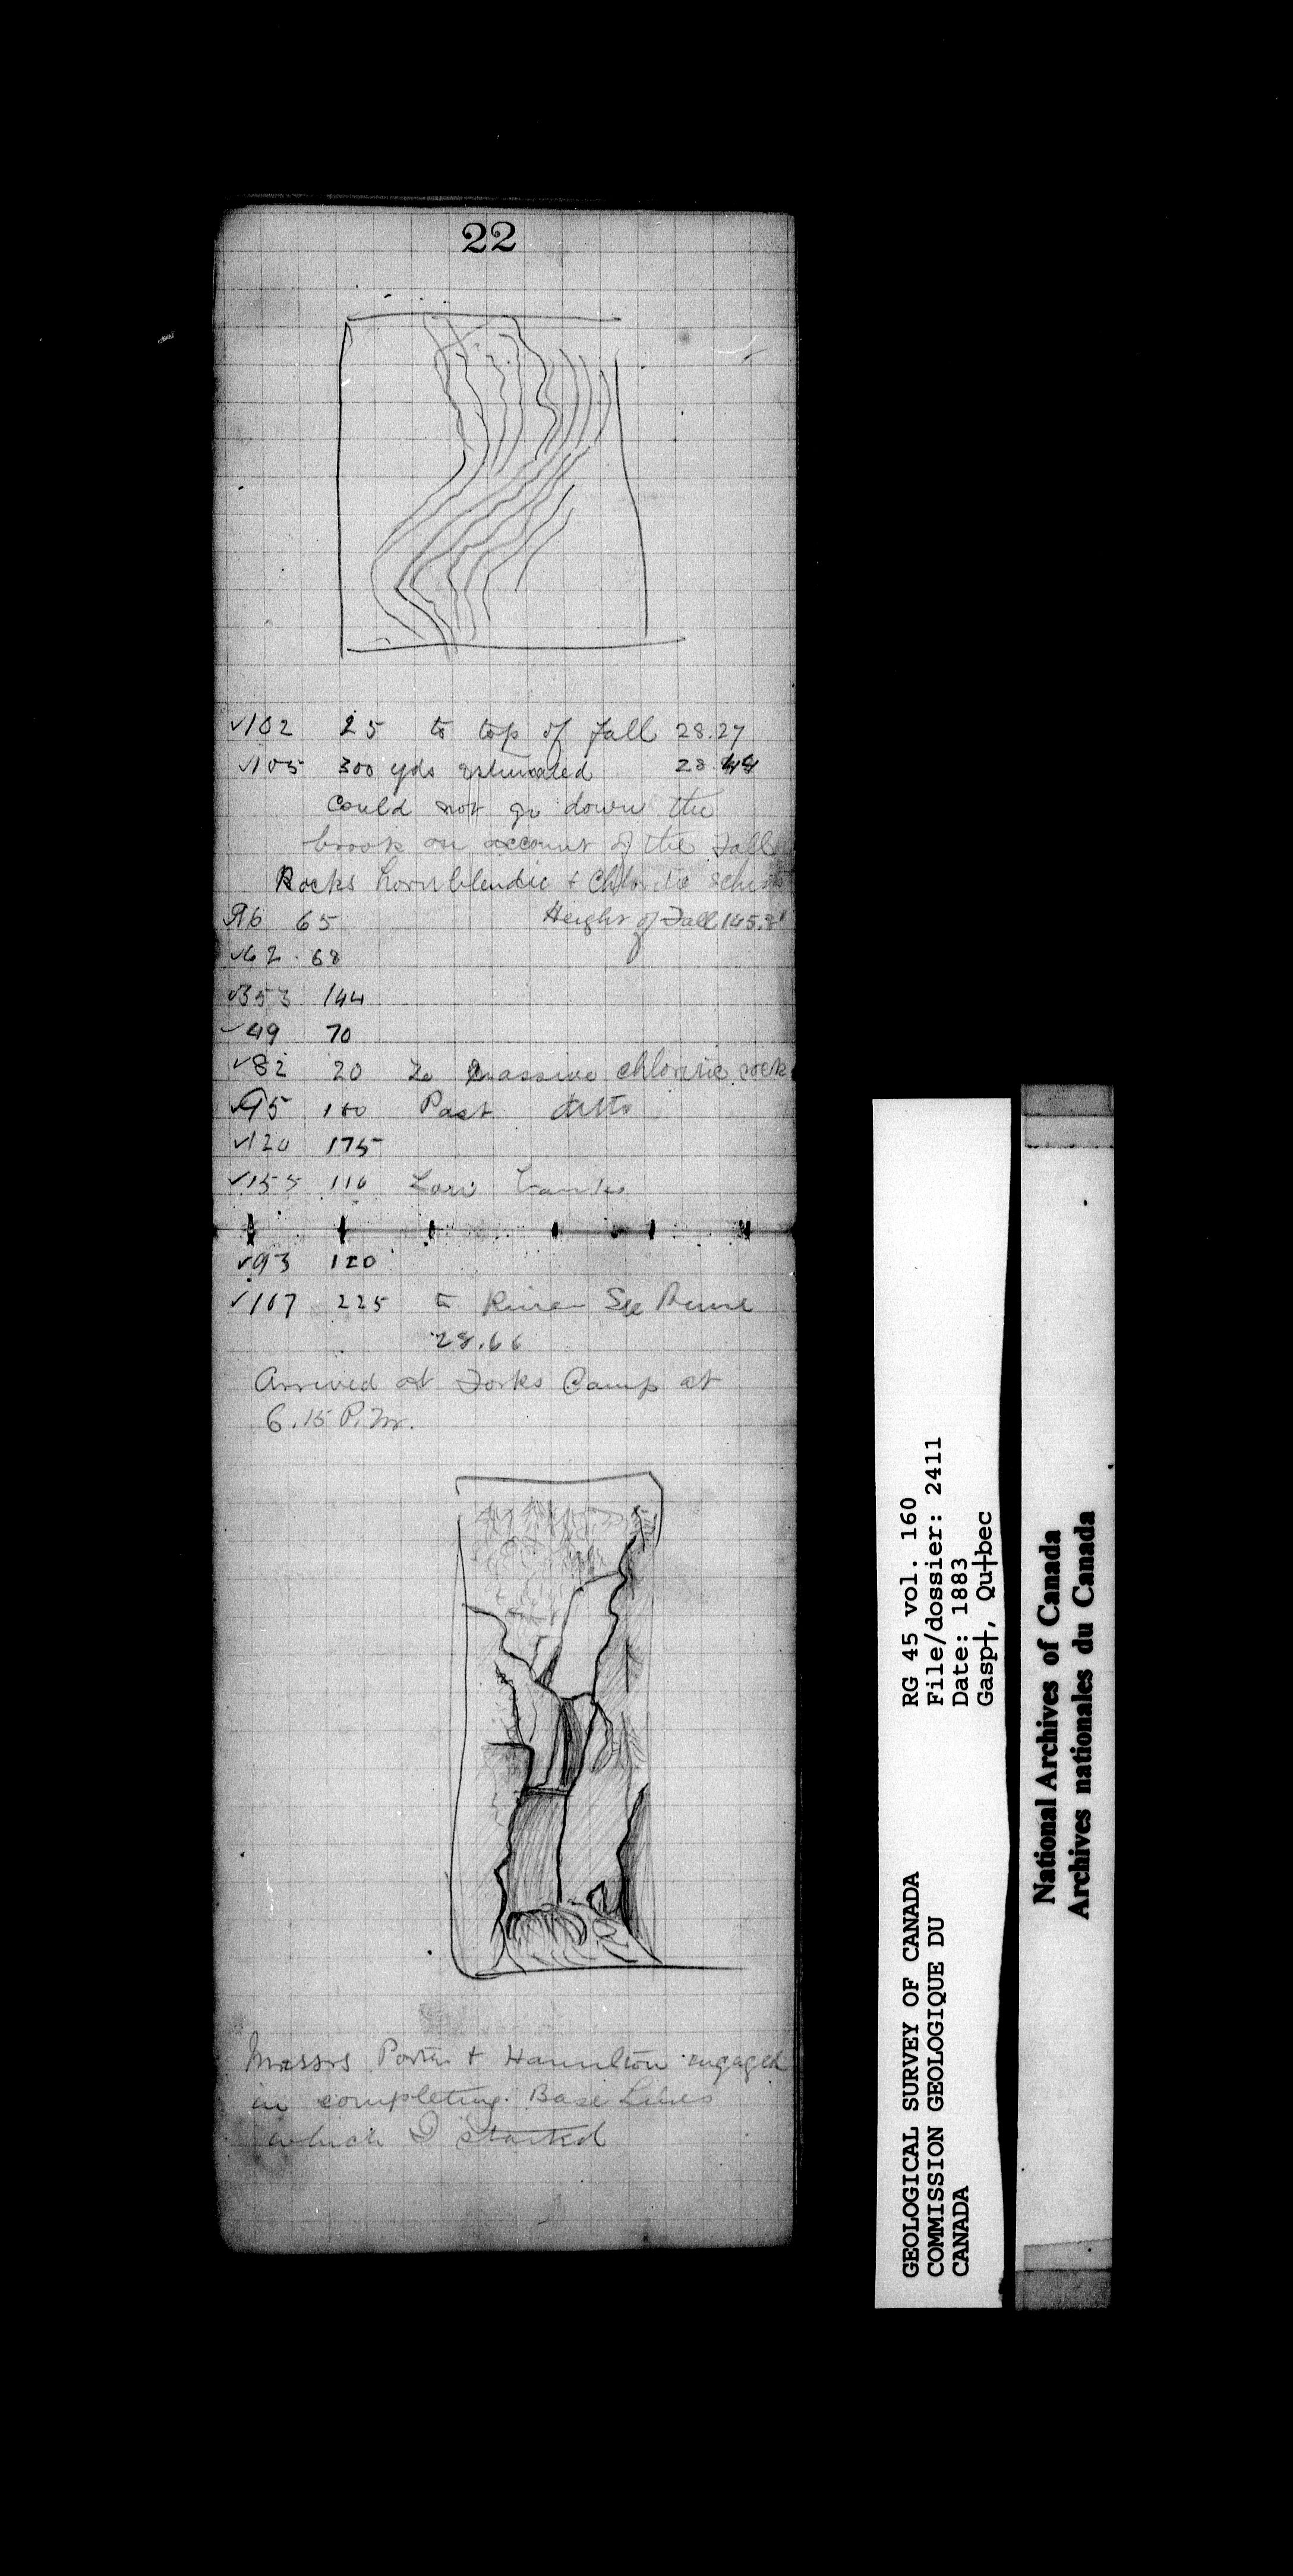 22
✓102 25 to top of fall 28.27
✓105 300 yds estimated 28.48
could not go down the
brook on account of the Fall
Rocks hornblendic + Chloritic schists
96 65 Height of Fall 145.8'
✓62 68
✓353 144
✓49 70
✓82 20 To massive chloritic rock
✓95 100 Past ditto
✓120 175
✓155 116 Low banks
✓93 120
✓107 225 to River Ste Anne
28.66
Arrived at Forks Camp at
6.15 P.M.
Messrs Porter + Hamilton engaged
in completing Base Lines
which I started
RG 45 vol. 160
File/dossier: 2411
Date: 1883
Gasp†, Qu†bec
GEOLOGICAL SURVEY OF CANADA
COMMISSION GEOLOGIQUE DU
CANADA
National Archives of Canada
Archives nationales du Canada